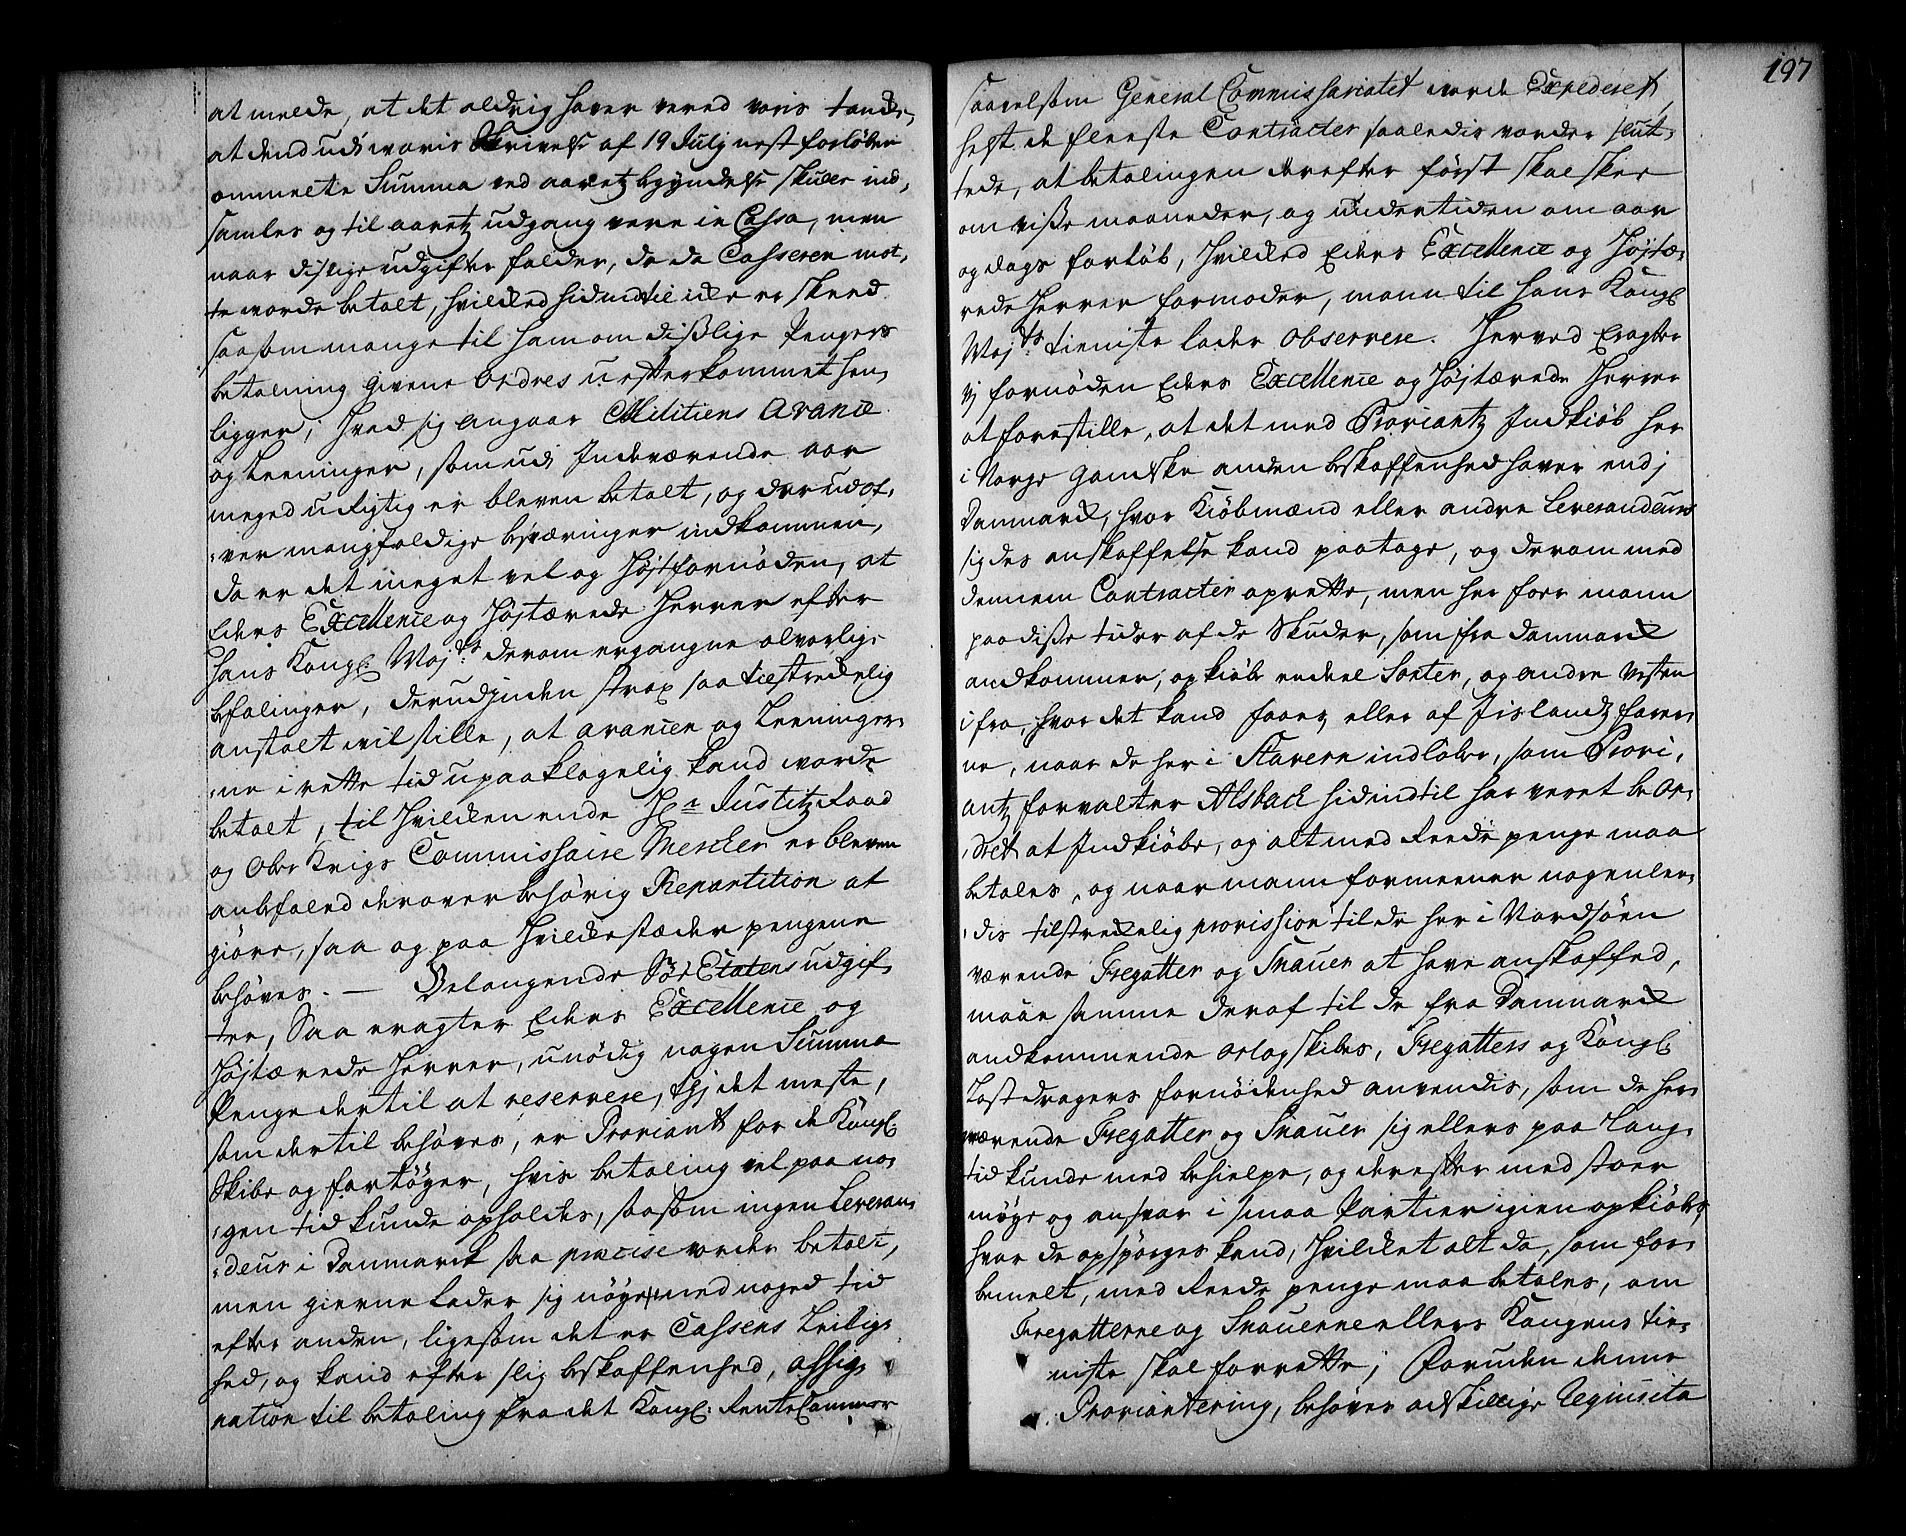 at melde, at det aldrig haver vered voris tancke,
at dend udi woris Skrivelse af 19 July nest forløben
ommelte Summa ved aaretz begyndelse skulle ind,
samles og til aaretz udgang vere in Cassa, men
naar dislige udgifter falder, da de Casseren mot,
te worde betalt, hvilcked hidindtil icke er skeed
saasom mange til ham om disslige Pengers
betalning givene Ordres uefterkommet hen,
ligger; hvad sig angaar Militiens Avance
og Leeninger, som udi Indeværende aar
meged urigtig er bleven betalt, og derudof,
:ver mangfoldige besværinger indkommen,
da er det meget vel og høstfornøden, at
Eders Excellence og Højtærede Herrer efter
hans Kongl: Maj:ts derom ergangne alvorlige
befalinger, derudjnden strax saa tilstreckelig
anstalt wil stille, at avancen og Leeninger,
:ne i rette tid upaaklagelig kand worde
betalt, til hvilcken ende Hr: Justitz Raad
og Ober Krigs Commissaire Mercker er bleven
anbefaled derover behørig Repartition at
giøre, saa og paa hvilcke stæder pengene
behøves. — Belangende Søe Etatens udgif,
ter, Saa eragter Eders Excellence og
Højtærede Herrer, unødig nogen Summa
Penge dertil at reservere, thj det meste,
som dertil behøves, er Proviant for de Kongl:
Skibe og fartøyer, hvis betaling vel paa no,
:gen tid kunde opholdes, saasom ingen Leveran,
:deur i Danmarck saa præcise vorder betalt,
men gierne lader sig nøye med noged tid
efter anden, ligesom det er Cassens Leilig,
hed, og kand efter slig beskaffenhed, assig,
nation til betaling fra det Kongl: RenteCammer
197
saavelsom General Commissariatet worde Expederet,
helst de fleeste Contracter saaledis vorder slut,
tede, at betalingen derefter først skal skee
om visse maaneder, og undertiden om aar
og dags forløb, hvilcked Eders Excellence og Højtæ,
rede Herrer formoder, mann til hans Kongl:
Maj:ts tieniste lader observere. Herved Eragter
vj fornøden Eders Excellence og Højtærede Herrer
at forestille, at det med Proviantz Indkiøb her
i Norge gandske anden beskaffenhed haver end j
Danmarck, hvor Kiøbmænd eller andre Leverandeurs
sig des anskaffelse kand paatage, og derom med
dennem Contracter oprette, men her faar mann
paa disse tider af de Skuder, som fra Danmarck
andkommer, opkiøbe endeel Sorter, og andre Vesten
ifra, hvor det kand faaes eller af Jislandz farer,
ne, naar de her i Stavern indløber, som Provi,
antz forvalter Alsback hidindtil har veret beor,
:dret at Indkiøbe, og alt med Reede penge maa
betales, og naar mann formeener nogenler,
:dis tilstreckelig provission til de her i Nordsøen
værende Fregatter og Snauer at have anskaffed,
maae samme deraf til de fra Danmarck
andkommende orlogskibes, Fregatters og Kongl:
Lastdragers fornødenhed anvendis, som de her,
værende Fregatter og Snauer sig ellers paa lang,
tid kunde med behielpe, og derefter med stoer
møye og ansvar i smaa Partier igien opkiøbes,
hvor de opspørges kand, hvilcket alt da, som for,
bemelt, med Reede penge maa betales, om
Fregatterne og Snauerne ellers Kongens tie,
niste skal forrette; Foruden denne
Proviantering, behøves adskillige Requisita